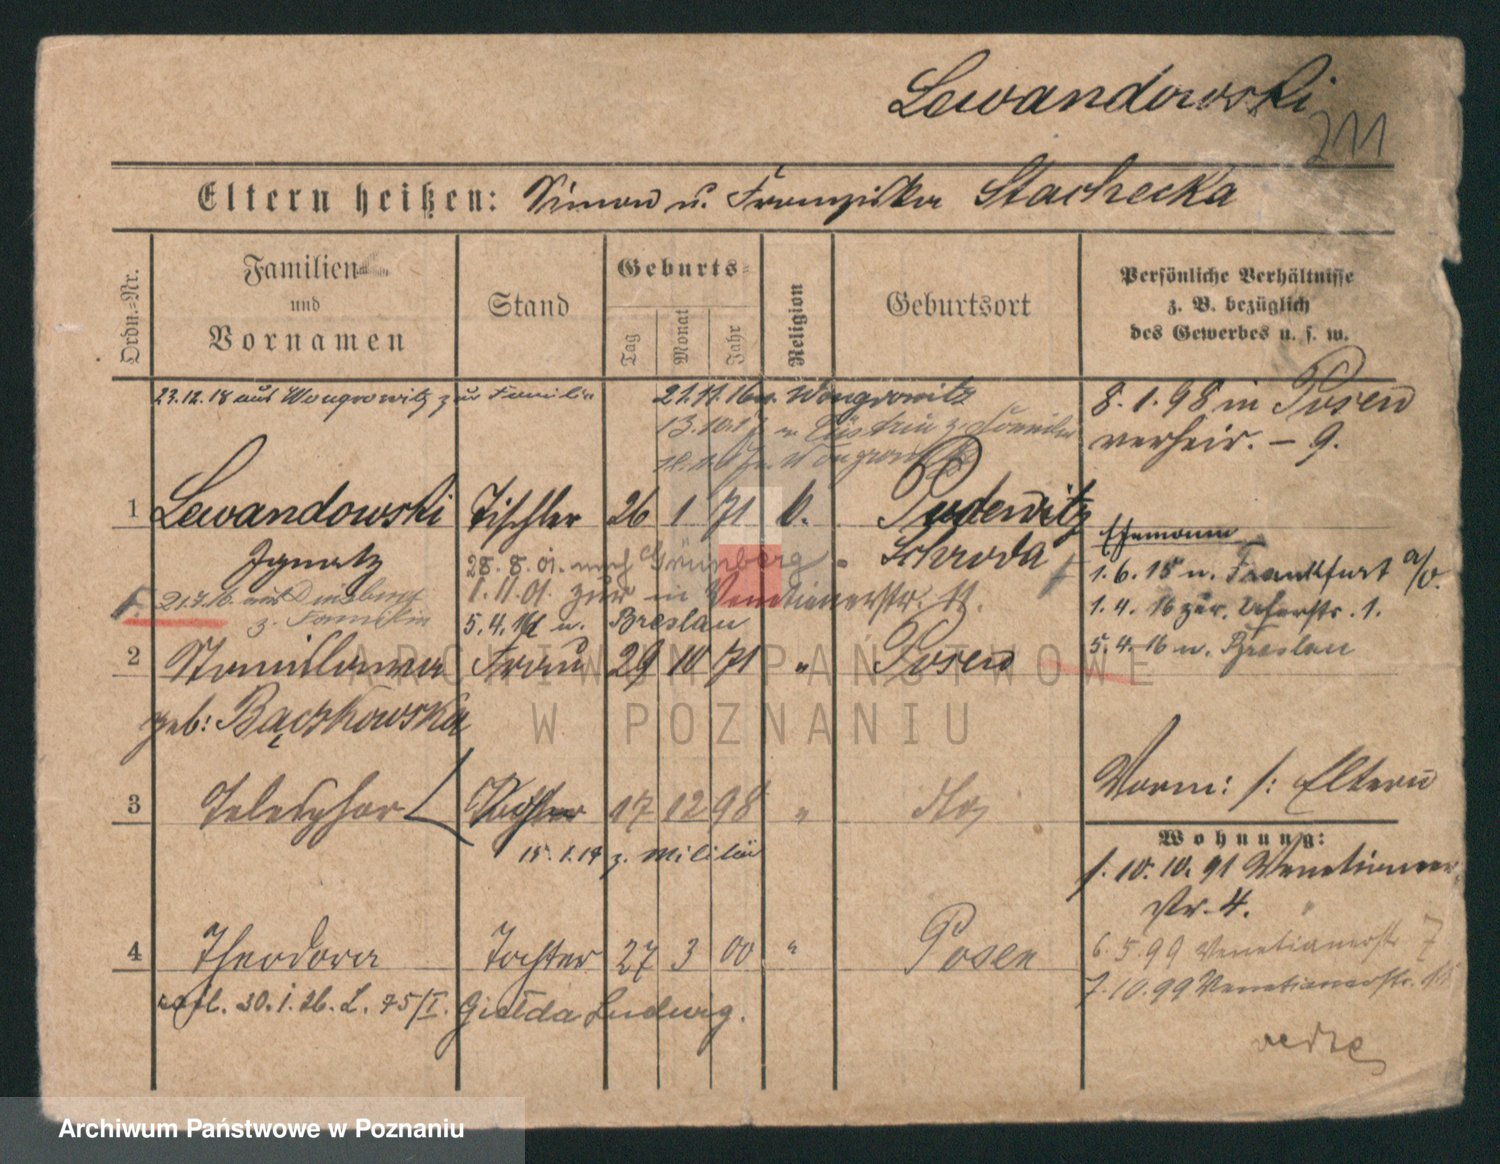 Lewandowski
211
Eltern heißen: Simon u. Franziska Stachecka
Ordn.=Nr.
Familien=
und
Vornamen
Stand
Geburts=
Tag
Monat
Jahr
Religion
Geburtsort
Persönliche Verhältnisse
z. B. bezüglich
des Gewerbes u. s. w.
23.12.18 aus Wongrowitz zur Familie
21.11.16 n. Wongrowitz
8.1.98 in Posen
verheir. – 9.
1 Lewandowski Tischler 26 1 71 k. Pudewitz
Ignatz
Schroda
28.8.01. nach Grünberg
1.11.01. zur in Venetianerstr.
21.7.16. aus Duisburg
z. Familie
5.4.16 n. Breslau
Ehemann
1.6.15 n. Frankfurt a/O.
1.4.16 zur. Uferstr. 1.
5.4.16 n. Breslau
2 Stanislawa Frau 29 10 71 " Posen
geb: Bączkowska
3 Telesphor Tochter 17 12 98 "
15.1.17 z. Militär
Vorm: s: Eltern
Wohnung:
1.10.10.91 Venetianer
Str. 4.
6.5.99 Venetianerstr. 7
7.10.99 Venetianerstr.
4 Theodora Tochter 27 3 00 " Posen
30.1.26. L. 45/I. Gizelda Ludwig.
ARCHIWUM PAŃSTWOWE
W POZNANIU
Archiwum Państwowe w Poznaniu